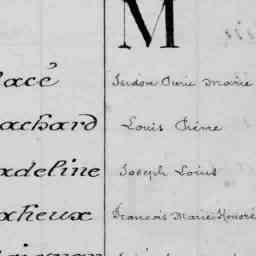 M
acé Isidore Marie
achard Louis Pierre
adeline Joseph Louis
aheux François Marie Honoré